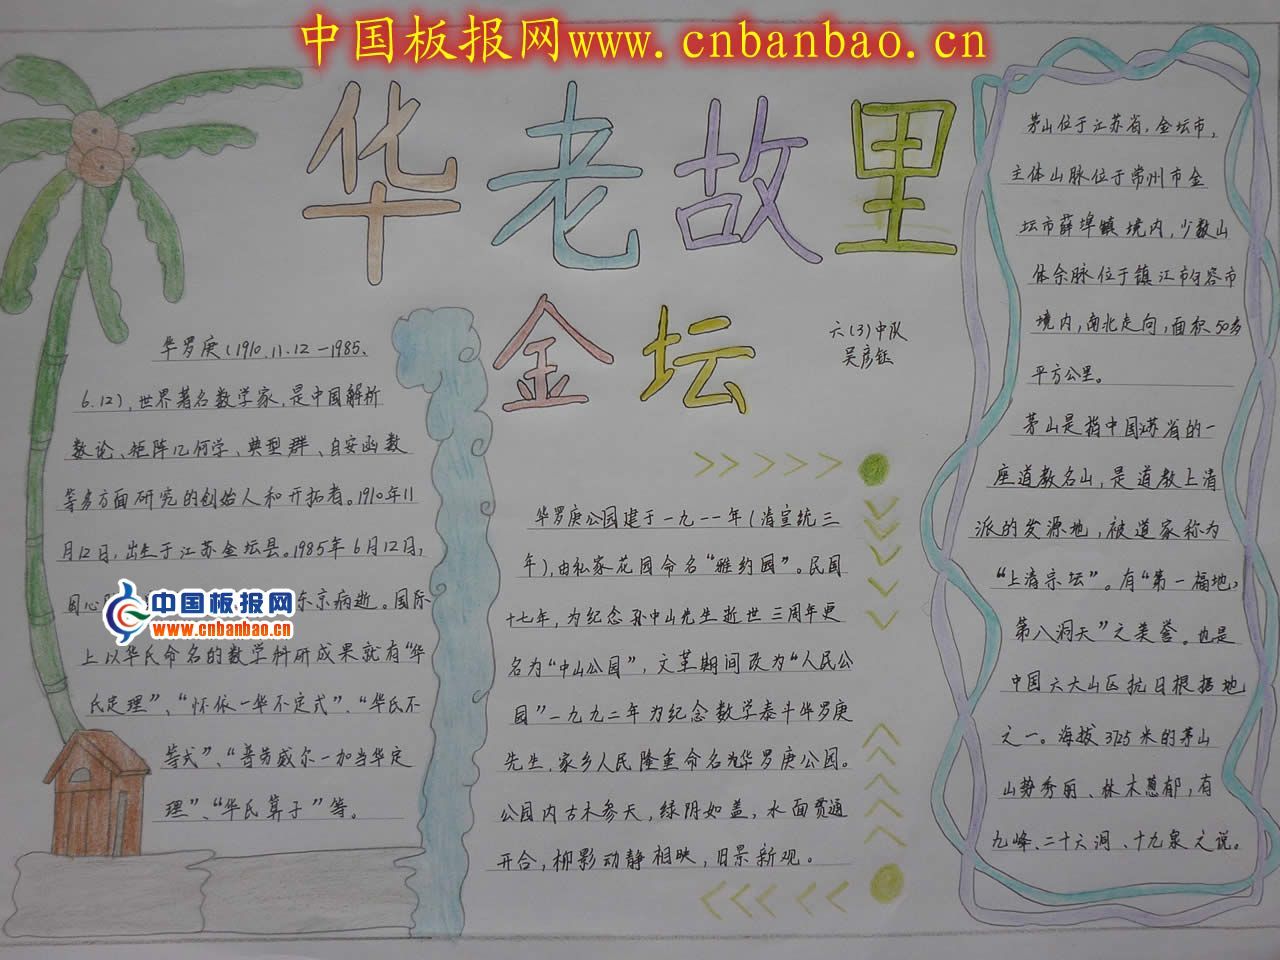 中国板报网www.cnbanbao.cn
华老故里
金坛
六(3)中队
吴彦钰
华罗庚(1910.11.12-1985.
6.12),世界著名数学家,是中国解析
数论、矩阵几何学、典型群、自安函数
等多方面研究的创始人和开拓者。1910年11
月12日,出生于江苏金坛县。1985年6月12日,
因心
东京病逝。国际
中国板报网
www.cnbanbao.cn
上以华氏命名的数学科研成果就有“华
氏定理”、“怀依一华不定式”、“华氏不
等式”、“普劳威尔一加当华定
理”、“华氏算子”等。
华罗庚公园建于一九一一年(清宣统三
年),由私家花园命名“雅约园”。民国
十七年,为纪念孙中山先生逝世三周年更
名为“中山公园”,文革期间改为“人民公
园”一九九二年为纪念数学泰斗华罗庚
先生,家乡人民隆重命名为华罗庚公园。
公园内古木参天,绿阴如盖,水面贯通
开合,柳影动静相映,旧景新观。
茅山位于江苏省,金坛市,
主体山脉位于常州市金
坛市薛埠镇境内,少数山
体余脉位于镇江市句容市
境内,南北走向,面积50多
平方公里。
茅山是指中国江苏省的一
座道教名山,是道教上清
派的发源地,被道家称为
“上清宗坛”。有“第一福地,
第八洞天”之美誉。也是
中国六大山区抗日根据地
之一。海拔3725米的茅山
山势秀丽、林木葱郁,有
九峰、二十六洞、十九泉之说。